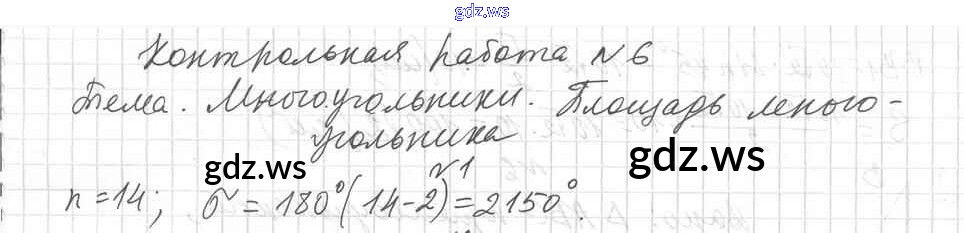 gdz.ws
Контрольная работа №6
Тема. Многоугольники. Площадь много-
угольника
gdz.ws
gdz.ws
№1
n=14; σ = 180°(14-2)=2150°.